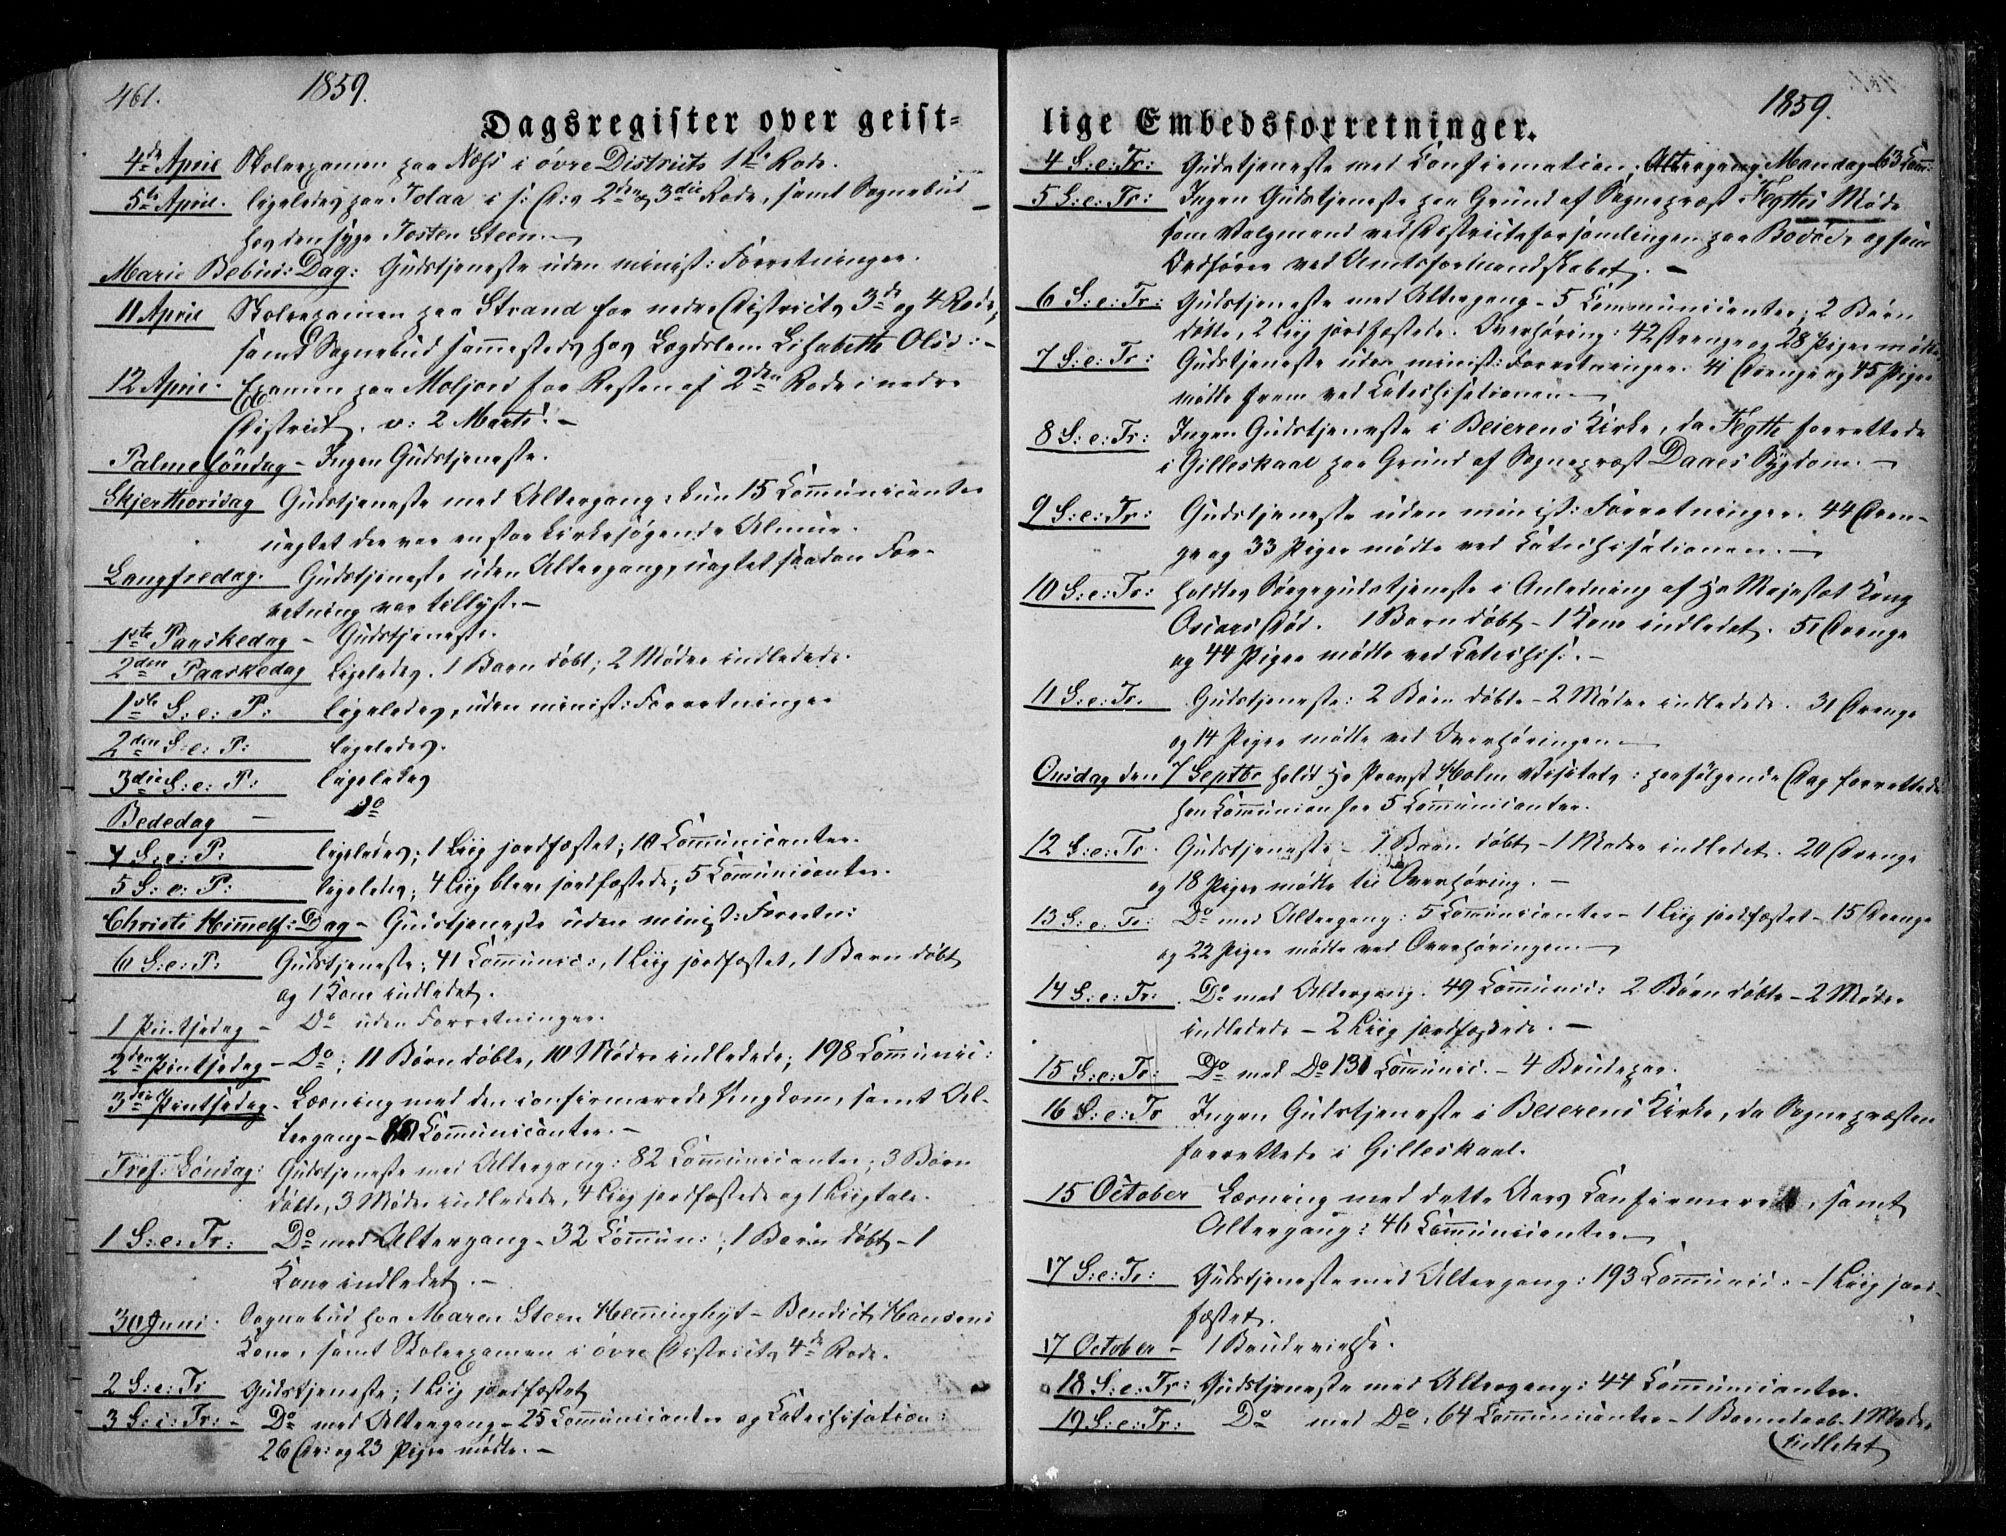 461. 1859.
Dagsregister over geist-
4de April Skoleexamen paa Næss i øvre Districts 1ste Rode.
5te April. ligeledes paa Tolaa i s: D:s 2den & 3die Rode, samt Sognebud
hos den syge Josten Steen. —
Mariæ Bebud: Dag: Gudstjeneste uden minist: Forretninger.
11 April Skoleexamen paa Strand for nedre Districts 3de og 4 Rode,
samt Sognebud sammesteds hos Lægdslem Lisabeth Olsd: —
12 April. Examen paa Moljord for Resten af 2den Rode i nedre
District. v: 2 Marts! —
Palmesøndag — Ingen Gudstjeneste.
Skjerthorsdag Gudstjeneste med Altergang: kun 15 Communicanter
uagtet der var en stor kirkesøgende Almue.
Langfredag. Gudstjeneste uden Altergang, uagtet saadan For-
retning var tillyst. —
1ste Paaskedag — Gudstjeneste.
2den Paaskedag Ligeledes. 1 Barn døbt; 2 Mødre indledede.
1ste S: e: P: ligeledes, uden minist: Forretninger
2den S: e: P: ligeledes.
3die S: e: P: ligeledes
Bededag — Do
4 S: e: P: ligeledes; 1 Liig jordfæstet; 10 Communicanter.
5 S: e: P: ligeledes; 4 Liig bleve jordfæstede; 5 Communicanter.
Christi Himmelf: Dag — Gudstjeneste uden minist: Forretn:
6 S: e: P: Gudstjeneste; 41 Communic:, 1 Liig jordfæstet, 1 Barn døbt
og 1 Kone indledet.
1 Pintsedag — Do uden Forretninger.
2den Pintsedag — Do; 11 Børn døbte, 10 Mødre indledede; 198 Communic:
3die Pintsedag — Læsning med den confirmerede Ungdom, samt Al-
tergang — Communicanter. —
Tref: Søndag: Gudstjeneste med Altergang: 82 Communicanter; 3 Børn
døbte, 3 Mødre indledede, 4 Liig jordfæstede og 1 Liigtale.
1 S: e: Tr: Do med Altergang — 32 Commun:; 1 Barn døbt — 1
Kone indledet. —
30 Juni. Sognebud hos Maren Steen Hemminghyt — Bendict Hansens
Kone, samt Skoleexamen i øvre Districts 4de Rode.
2 S: e: Tr Gudstjeneste; 1 Liig jordfæstet
3 S: e: Tr: — Do med Altergang — 25 Communicanter og Catechisation:
26 Dr: og 23 Piger mødte. —
1859.
lige Embedsforretninger.
4 S: e: Tr: Gudstjeneste med Confirmation; Altergang Mandag 63 Com:
5 S: e: Tr: Ingen Gudstjeneste paa Grund af Sognepræst Hyttes Møde
som Valgmand ved Districtsforsamlingen paa Bodøe, og som
Ordfører ved Amtsformandskabet. —
6 S: e: Tr: Gudstjeneste med Altergang — 5 Communicanter; 2 Børn
døbte, 2 Liig jordfæstede. Overhøring: 42 Drenge og 28 Piger mødte
7 S: e: Tr: Gudstjeneste uden minist: Forretninger. 41 Drenge og 45 Piger
mødte frem ved Catechisationen. —
8 S: e: Tr: Ingen Gudstjeneste i Beierens Kirke, da Hytte forrettede
i Gilleskaal paa Grund af Sognepræst Daaes Sygdom. —
9 S: e: Tr: Gudstjeneste uden minist: Forretninger. 44 Dren-
ge og 33 Piger mødte ved Catechisationen. —
10 S: e: Tr: holdtes Sørgegudstjeneste i Anledning af Hs Majestæt Kong
Oscars Død. 1 Barn døbt — 1 Kone indledet. 51 Drenge
og 44 Piger mødte ved Catechis: —
11 S: e: Tr. Gudstjeneste: 2 Børn døbte — 2 Mødre indledede. 31 Drenge
og 14 Piger mødte ved Overhøringen —
Onsdag den 7 Septbr holdt Hr Provst Holm Visitats: paafølgende Dag forrettede
han Communion for 5 Communicanter.
12 S: e: Tr. Gudstjeneste — 1 Barn døbt — 1 Moder indledet. 20 Drenge
og 18 Piger mødte til Overhøring. —
13 S: e: Tr: Do med Altergang: 5 Communicanter — 1 Liig jordfæstet — 15 Drenge
og 22 Piger mødte ved Overhøringen —
14 S: e: Tr: Do med Altergang. 49 Communic: 2 Børn døbte — 2 Mødre
indledede — 2 Liig jordfæstede. —
15 S: e: Tr: Do med Do 131 Communic. — 4 Brudepar.
16 S: e: Tr Ingen Gudstjeneste i Beierens Kirke, da Sognepræsten
forrettede i Gilleskaal.
15 October Læsning med dette Aars Confirmerede, samt
Altergang: 46 Communicanter. —
17 S: e: Tr: Gudstjeneste med Altergang: 193 Communic: — 1 Liig jord-
fæstet.
17 October — 1 Brudevielse.
18 S: e: Tr: Gudstjeneste med Altergang: 44 Communicanter.
19 S: e: Tr: Do med Do: 64 Communicanter — 1 Barnedaab — 1 Moder
indledet